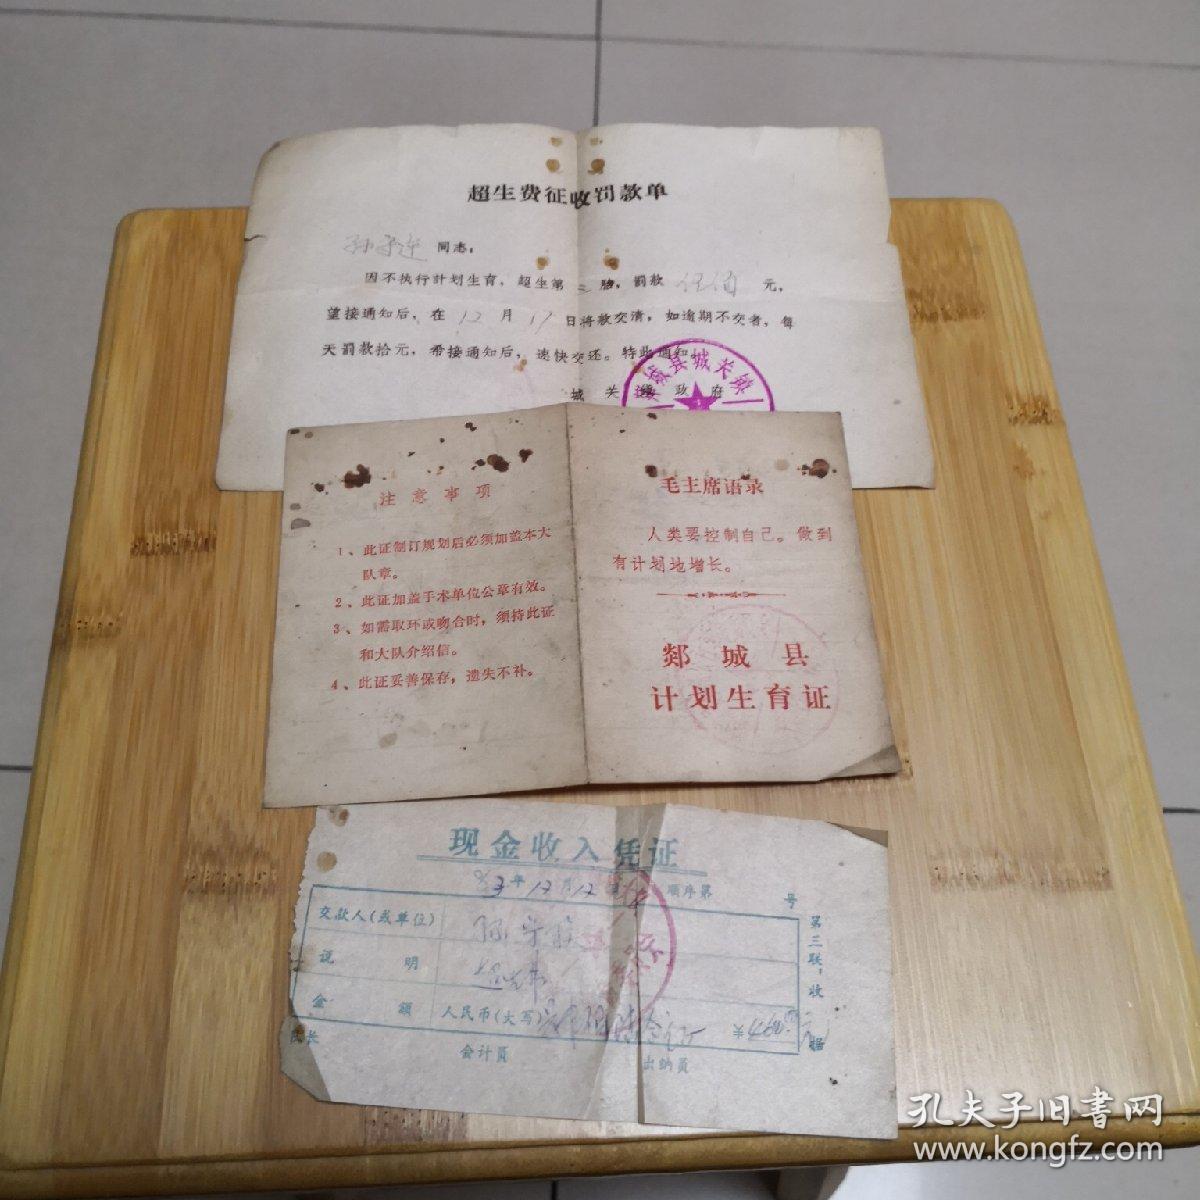 超生费征收罚款单
同志：
因不执行计划生育，超生第二胎，罚款 伍佰 元，
望接通知后，在 12 月 17 日将款交清，如逾期不交者，每
天罚款拾元，希接通知后，速快交还。特此通知。
城关镇政府
郯城县城关镇
注意事项
1、此证制订规划后必须加盖本大
队章。
2、此证加盖手术单位公章有效。
3、如需取环或吻合时，须持此证
和大队介绍信。
4、此证妥善保存，遗失不补。
毛主席语录
人类要控制自己。做到
有计划地增长。
郯城县
计划生育证
现金收入凭证
83年12月12日 顺序第 号
交款人（或单位）
说明
金额 人民币（大写）
元
队长 会计员 出纳员
第三联，收据
孔夫子旧书网
www.kongfz.com